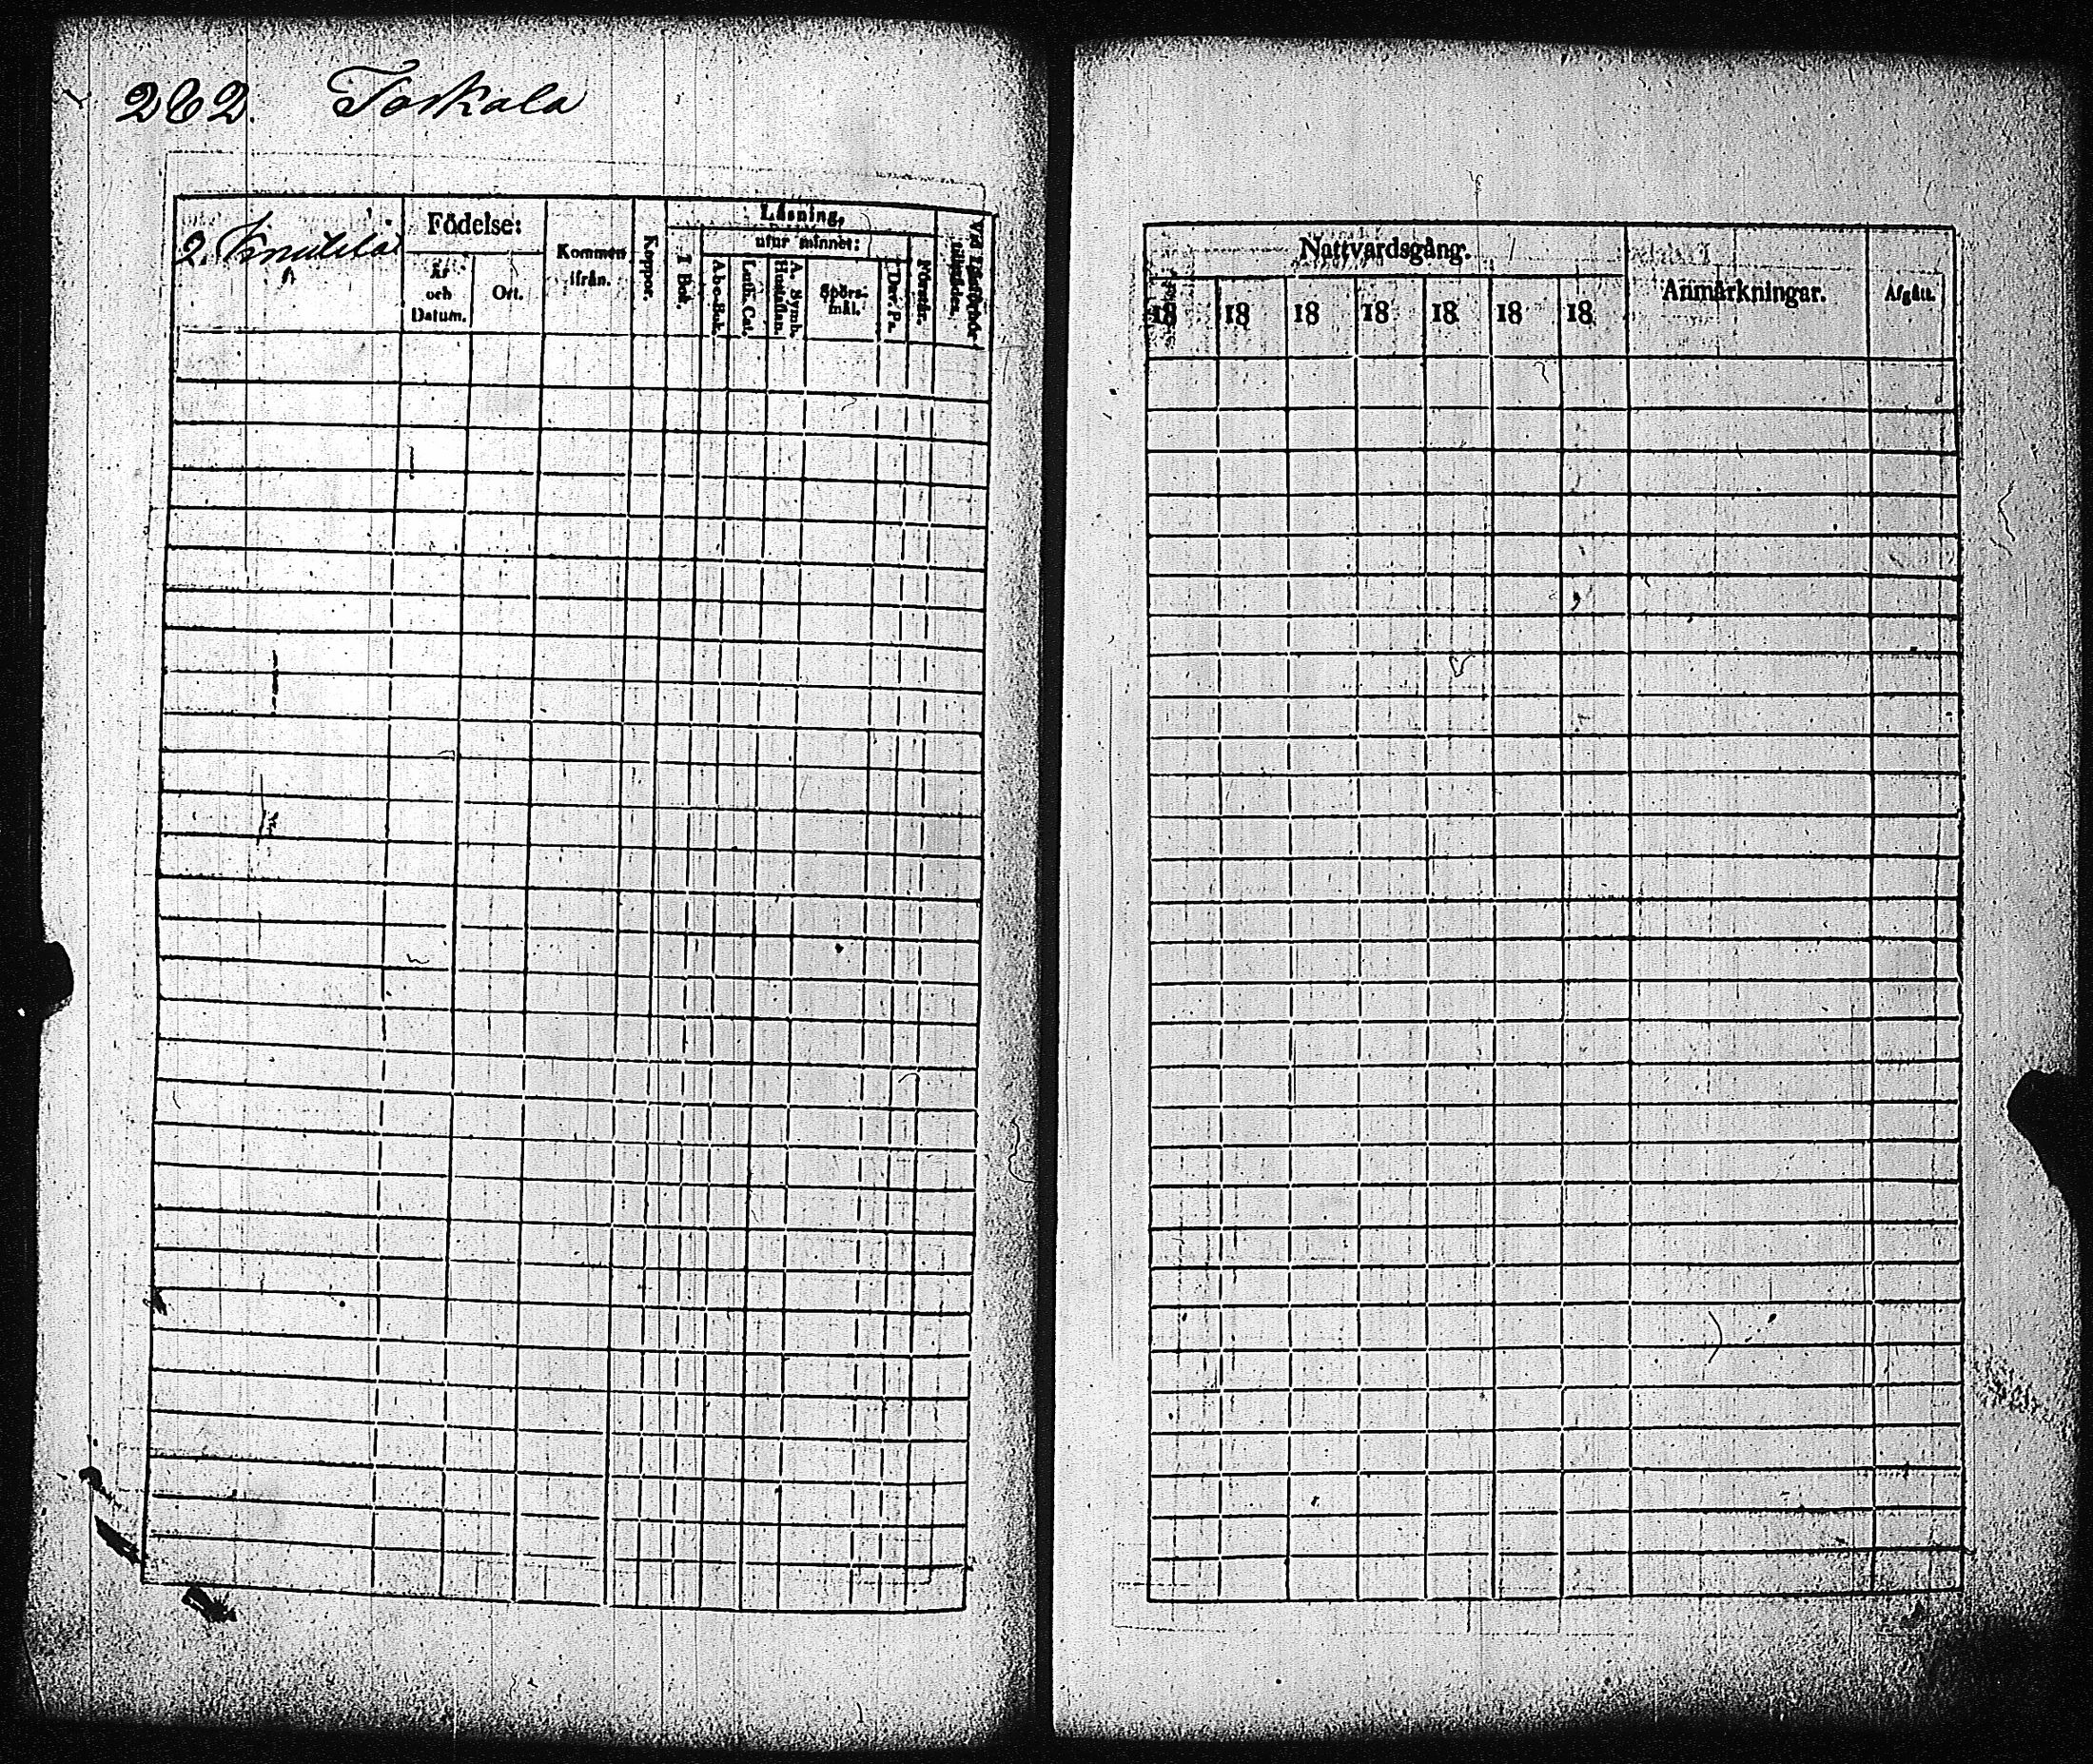 262. Toskala
2. Knutila
Födelse:
År
och
Datum.
Ort.
Kommen
ifrån.
Koppor.
Läsning,
I Bok.
utur minnet:
A b c-Bok.
Luth. Cat.
A. Symb.
Hustaflan.
Spörs-
mål.
Dav. Ps.
Förstår.
Vid Läsförhör
Nattvardsgång.
18 18 18 18 18 18 18
Anmärkningar.
Afgått.